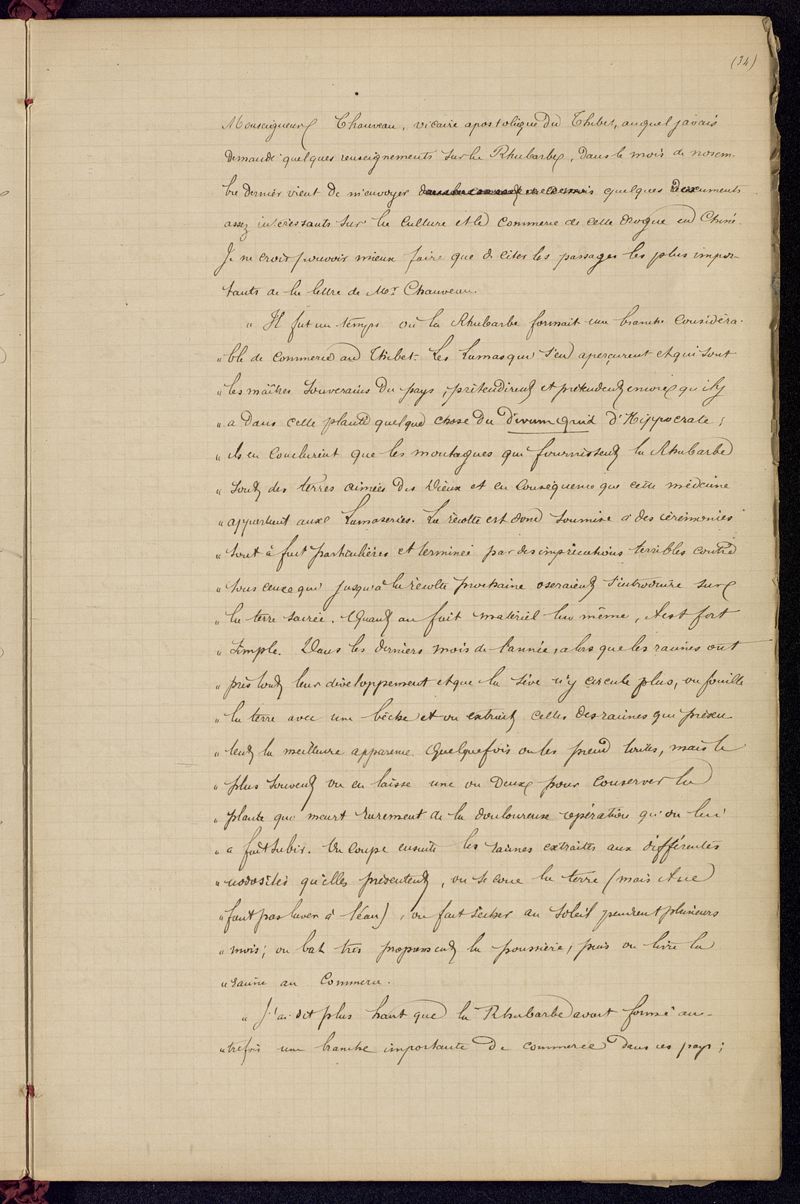 (34)
Monseigneur Chauveau, vicaire apostolique du Thibet, auquel j'avais
demandé quelques renseignements sur la Rhubarbe, dans le mois de novem-
bre dernier vient de m'envoyer quelques documents
assez intéressants sur la culture et le commerce de cette drogue en Chine.
Je ne crois pouvoir mieux faire que de citer les passages les plus impor-
tants de la lettre de Mgr Chauveau.
" Il fut un temps où la Rhubarbe formait une branche considéra-
" ble de commerce au Thibet. Les Lamas qui s'en aperçurent et qui sont
" les maîtres souverains du pays, prétendirent et prétendent encore qu'il y
" a dans cette plante quelque chose du Divum Quid d'Hippocrate ;
" ils en conclurent que les montagnes qui fournissent la Rhubarbe
" sont des terres aimées des Dieux et en conséquence que cette médecine
" appartient aux Lamaseries. La récolte est donc soumise à des cérémonies
" tout à fait particulières et terminée par des imprécations terribles contre
" tous ceux qui jusqu'à la récolte prochaine oseraient s'introduire sur
" la terre sacrée. Quant au fait matériel lui même, il est fort
" simple. Dans les derniers mois de l'année, alors que les racines ont
" pris tout leur développement et que la sève n'y circule plus, on fouille
" la terre avec une bêche et on extrait celles des racines qui présen-
" tent la meilleure apparence. Quelquefois on les prend toutes, mais le
" plus souvent on en laisse une ou deux pour conserver la
" plante qui meurt rarement de la douloureuse opération qu'on lui
" a fait subir. On coupe ensuite les racines extraites aux différentes
" nodosités qu'elles présentent, on secoue la terre (mais il ne
" faut pas laver à l'eau), on fait sécher au soleil pendant plusieurs
" mois ; on bat très proprement la poussière, puis on livre la
" racine au commerce.
" J'ai dit plus haut que la Rhubarbe avait formé au-
" trefois une branche importante de commerce dans ces pays ;